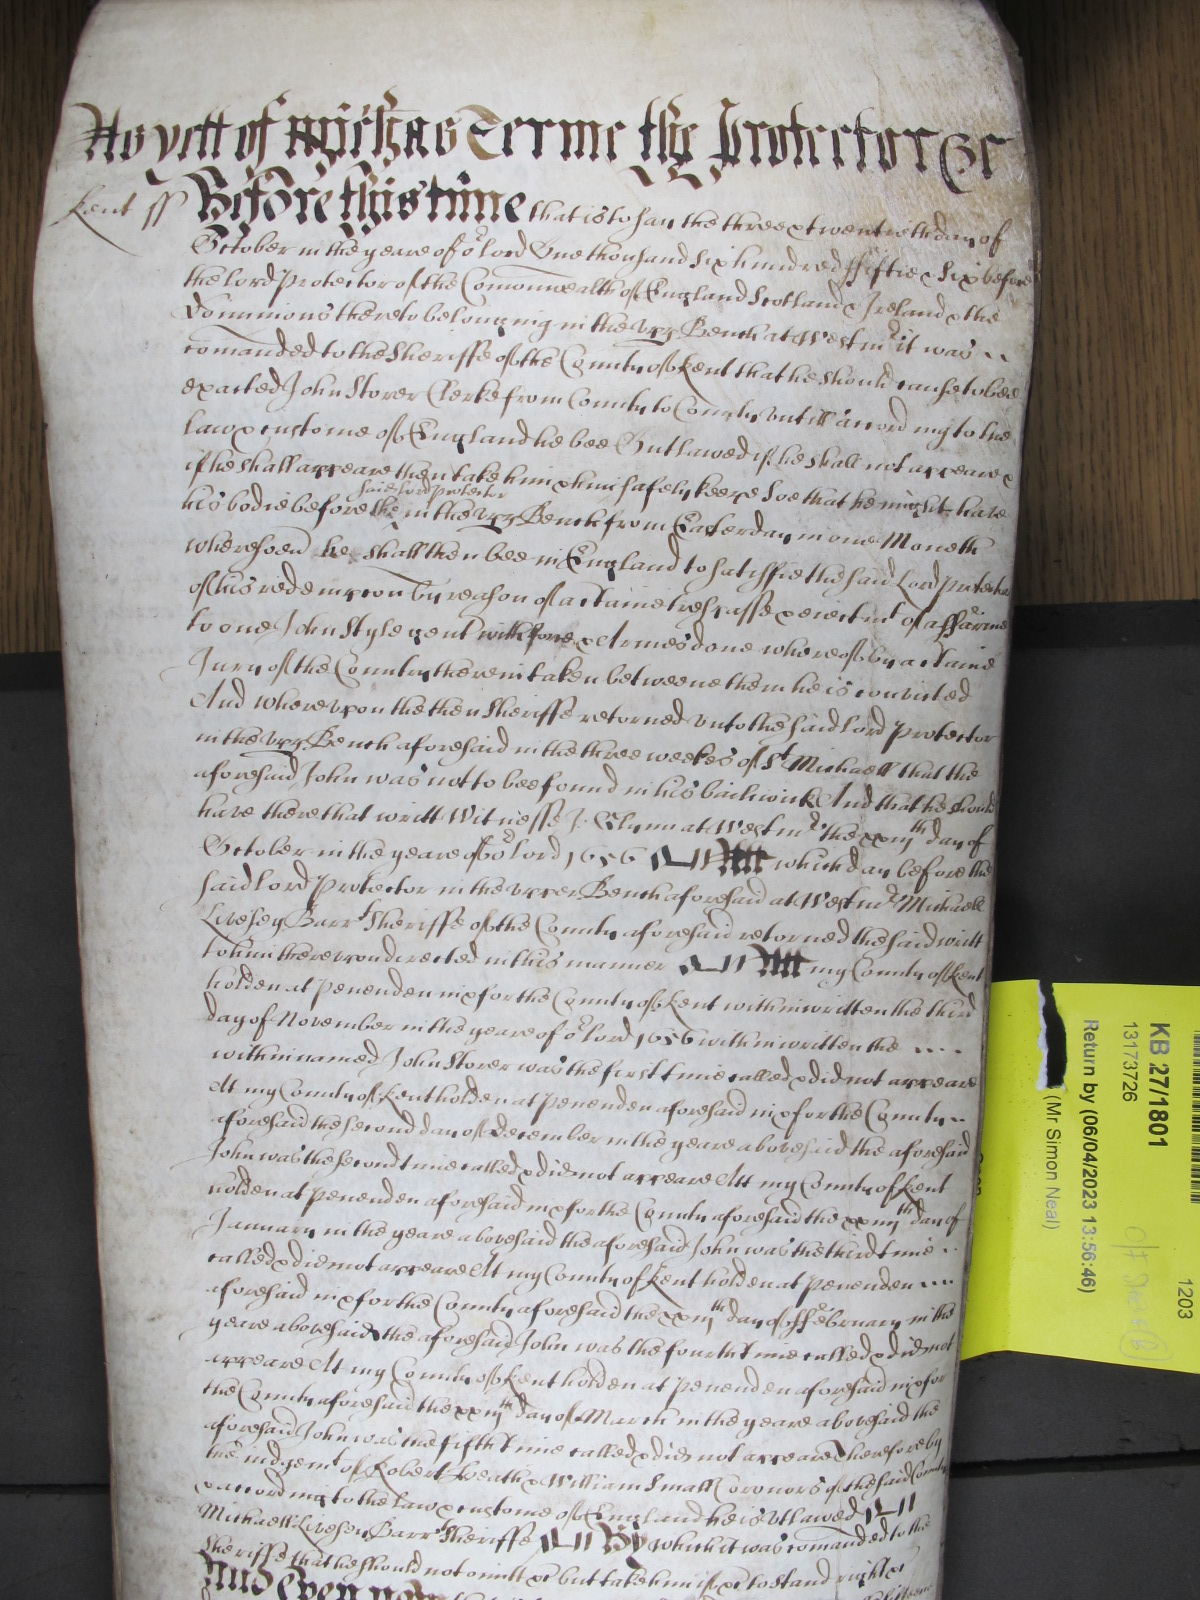 As yett of Michas Terme the Protector &c
Kent ss Before this time that is to say the three & twentieth day of
October in the yeare of or Lord One thousand six hundred ffiftie & six before
the Lord Protector of the Comonwealth of England Scotland & Ireland & the
Dominions thereto belonging in the vpp Bench at Westmr it was
comanded to the Sheriffe of the County of Kent that he should cause to bee
exacted John Storer Clerke from County to County vntill according to the
law & custome of England he bee Outlawed if he shall not appeare &
if he shall appeare then take him & him safely keepe soe that he might have
his bodie before the said Lord Protector in the vpp Bench from Easter day in one Moneth
wheresoeu he shall then bee in England to satisffie the said Lord Protector
of his redempcon by reason of a ctaine trespasse & eiectmt of affarme
to one John Style gent with force & Armes done whereof by a ctaine
Jury of the Country therein taken betweene them he is convicted
And wherevpon the then Sheriffe retorned vnto the said Lord Protector
in the vpp Bench aforesaid in the three weekes of St Michaell that the
aforesaid John was not to bee found in his bailiwick And that he should
have there that writt Witnesse J. Glynn at Westmr the xxiijth day of
October in the yeare of or Lord 1656 At which day before the
said Lord Protector in the vpper Bench aforesaid at Westmr Michaell
Livesey Barrt Sheriffe of the County aforesaid retorned the said writt
to him therevpon directed in this manner At my County of Kent
holden at Penenden in & for the County of Kent within written the third
day of November in the yeare of or Lord 1656 within written the
within named John Storer was the first time called & did not appeare
At my County of Kent holden at Penenden aforesaid in & for the County
aforesaid the second day of December in the yeare abovesaid the aforesaid
John was the second time called & did not appeare Att my County of Kent
holden at Penenden aforesaid in & for the County aforesaid the day of
January in the yeare abovesaid the aforesaid John was the third time
called & did not appeare At my County of Kent holden at Penenden
aforesaid in & for the County aforesaid the day of ffebruary in the
yeare abovesaid the aforesaid John was the fourth time called & did not
appeare At my County of Kent holden at Penenden aforesaid in & for
the County aforesaid the day of March in the yeare abovesaid the
aforesaid John was the fifth time called & did not appeare Therefore by
the iudgemt of Robert Heath & William Small Coronors of the said County
& according to the law & custome of England he is vtlawed
Michaell Livesey Barrt Sheriffe By which it was comanded to the
Sheriffe that he should not omitt &c but take him if &c to stand right &c
And Even now
KB 27/1801
13173726
Return by (06/04/2023 13:56:46)
(Mr Simon Neal)
1203